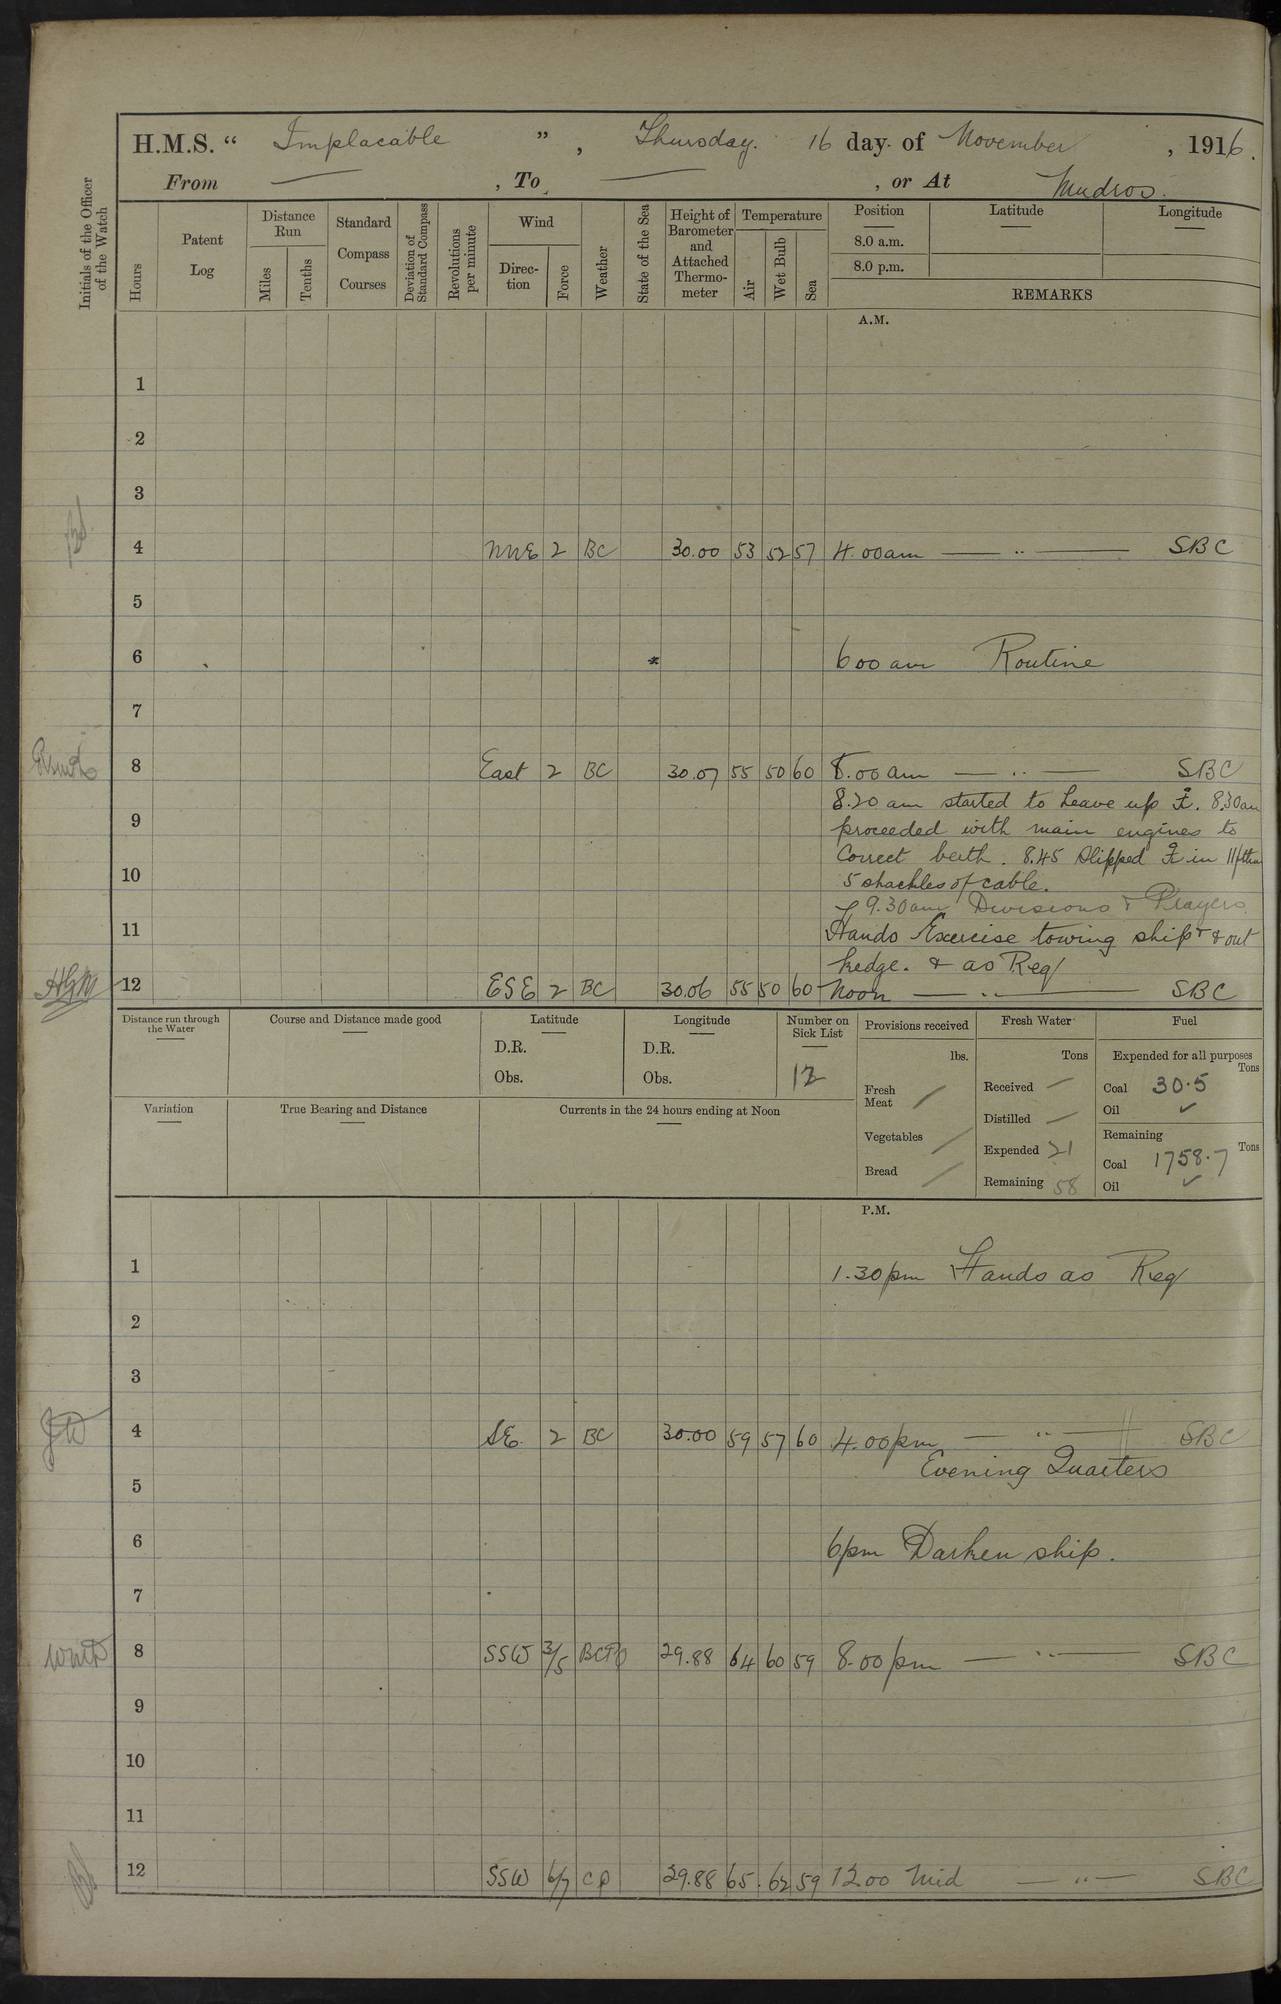 H.M.S. " Implacable ", Thursday. 16 day of November, 1916.
From — , To — , or At Mudros.
Initials of the Officer of the Watch
Hours
Patent Log
Distance Run
Miles
Tenths
Standard Compass Courses
Deviation of Standard Compass
Revolutions per minute
Wind
Direc-tion
Force
Weather
State of the Sea
Height of Barometer and Attached Thermo-meter
Temperature
Air
Wet Bulb
Sea
Position
8.0 a.m.
8.0 p.m.
Latitude
Longitude
REMARKS
A.M.
1
2
3
4 NNE 2 BC 30.00 53 52 57 4.00am — " — SBC
5
6 600 am Routine
7
8 East 2 BC 30.07 55 50 60 8.00 am — " — SBC
8.20 am started to heave up ⚓. 8.30am
9 proceeded with main engines to
Correct berth. 8.45 Slipped ⚓ in 11 fthm
10 5 shackles of cable.
9.30am Divisions & Prayers
11 Hands Exercise towing ship & out
kedge. & as Req
HGM 12 ESE 2 BC 30.06 55 50 60 Noon — " — SBC
Distance run through the Water
Course and Distance made good
Latitude
D.R.
Obs.
Longitude
D.R.
Obs.
Number on Sick List
12
Provisions received
lbs.
Fresh Meat /
Vegetables /
Bread /
Fresh Water
Tons
Received /
Distilled /
Expended 21
Remaining 58
Fuel
Expended for all purposes
Tons
Coal 30.5
Oil ✓
Remaining
Tons
Coal 1758.7
Oil ✓
Variation
True Bearing and Distance
Currents in the 24 hours ending at Noon
P.M.
1 1.30pm Hands as Req
2
3
4 SE. 2 BC 30.00 59 57 60 4.00pm — " — SBC
Evening Quarters
5
6 6pm Darken ship.
7
8 SSW 3/5 29.88 64 60 59 8.00pm — " — SBC
9
10
11
12 SSW 6/7 CP 29.88 65. 62 59 12.00 Mid — " — SBC